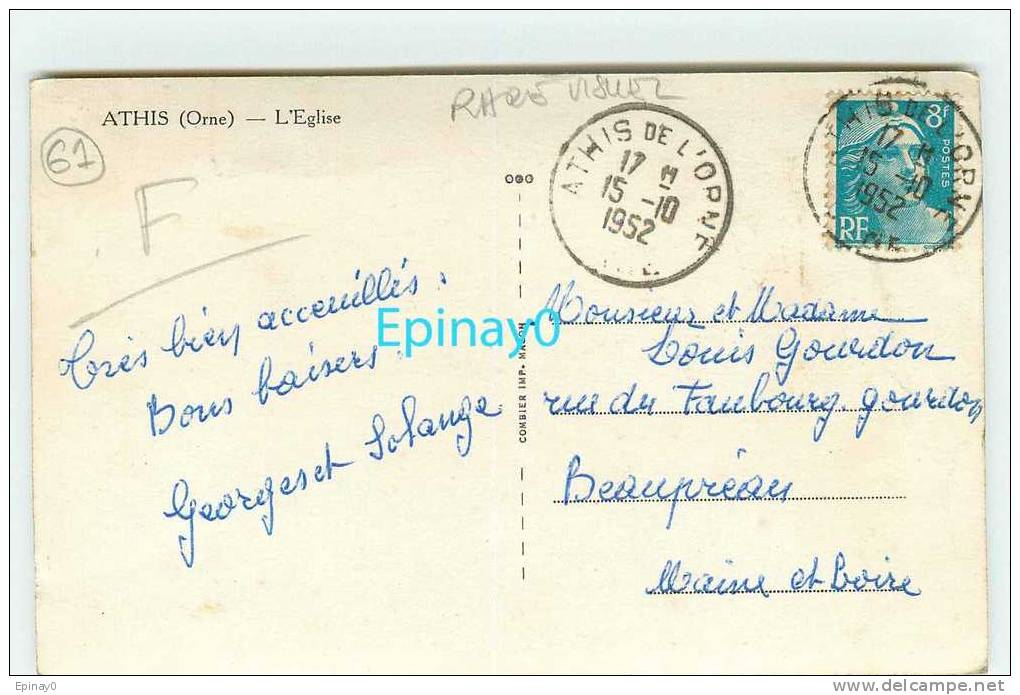 ATHIS (Orne) — L'Eglise
61
F
Très bien acceuillés.
Bons baisers.
Georges et Solange
COMBIER IMP. MACON
ATHIS DE L'ORNE
17 H
15 -10
1952
8f
POSTES
RF
17 H
15 -10
1952
Monsieur et Madame
Louis Gourdon
rue du Faubourg gourdon
Beaupréau
Maine et Loire
Epinay0
Epinay0
www.delcampe.net